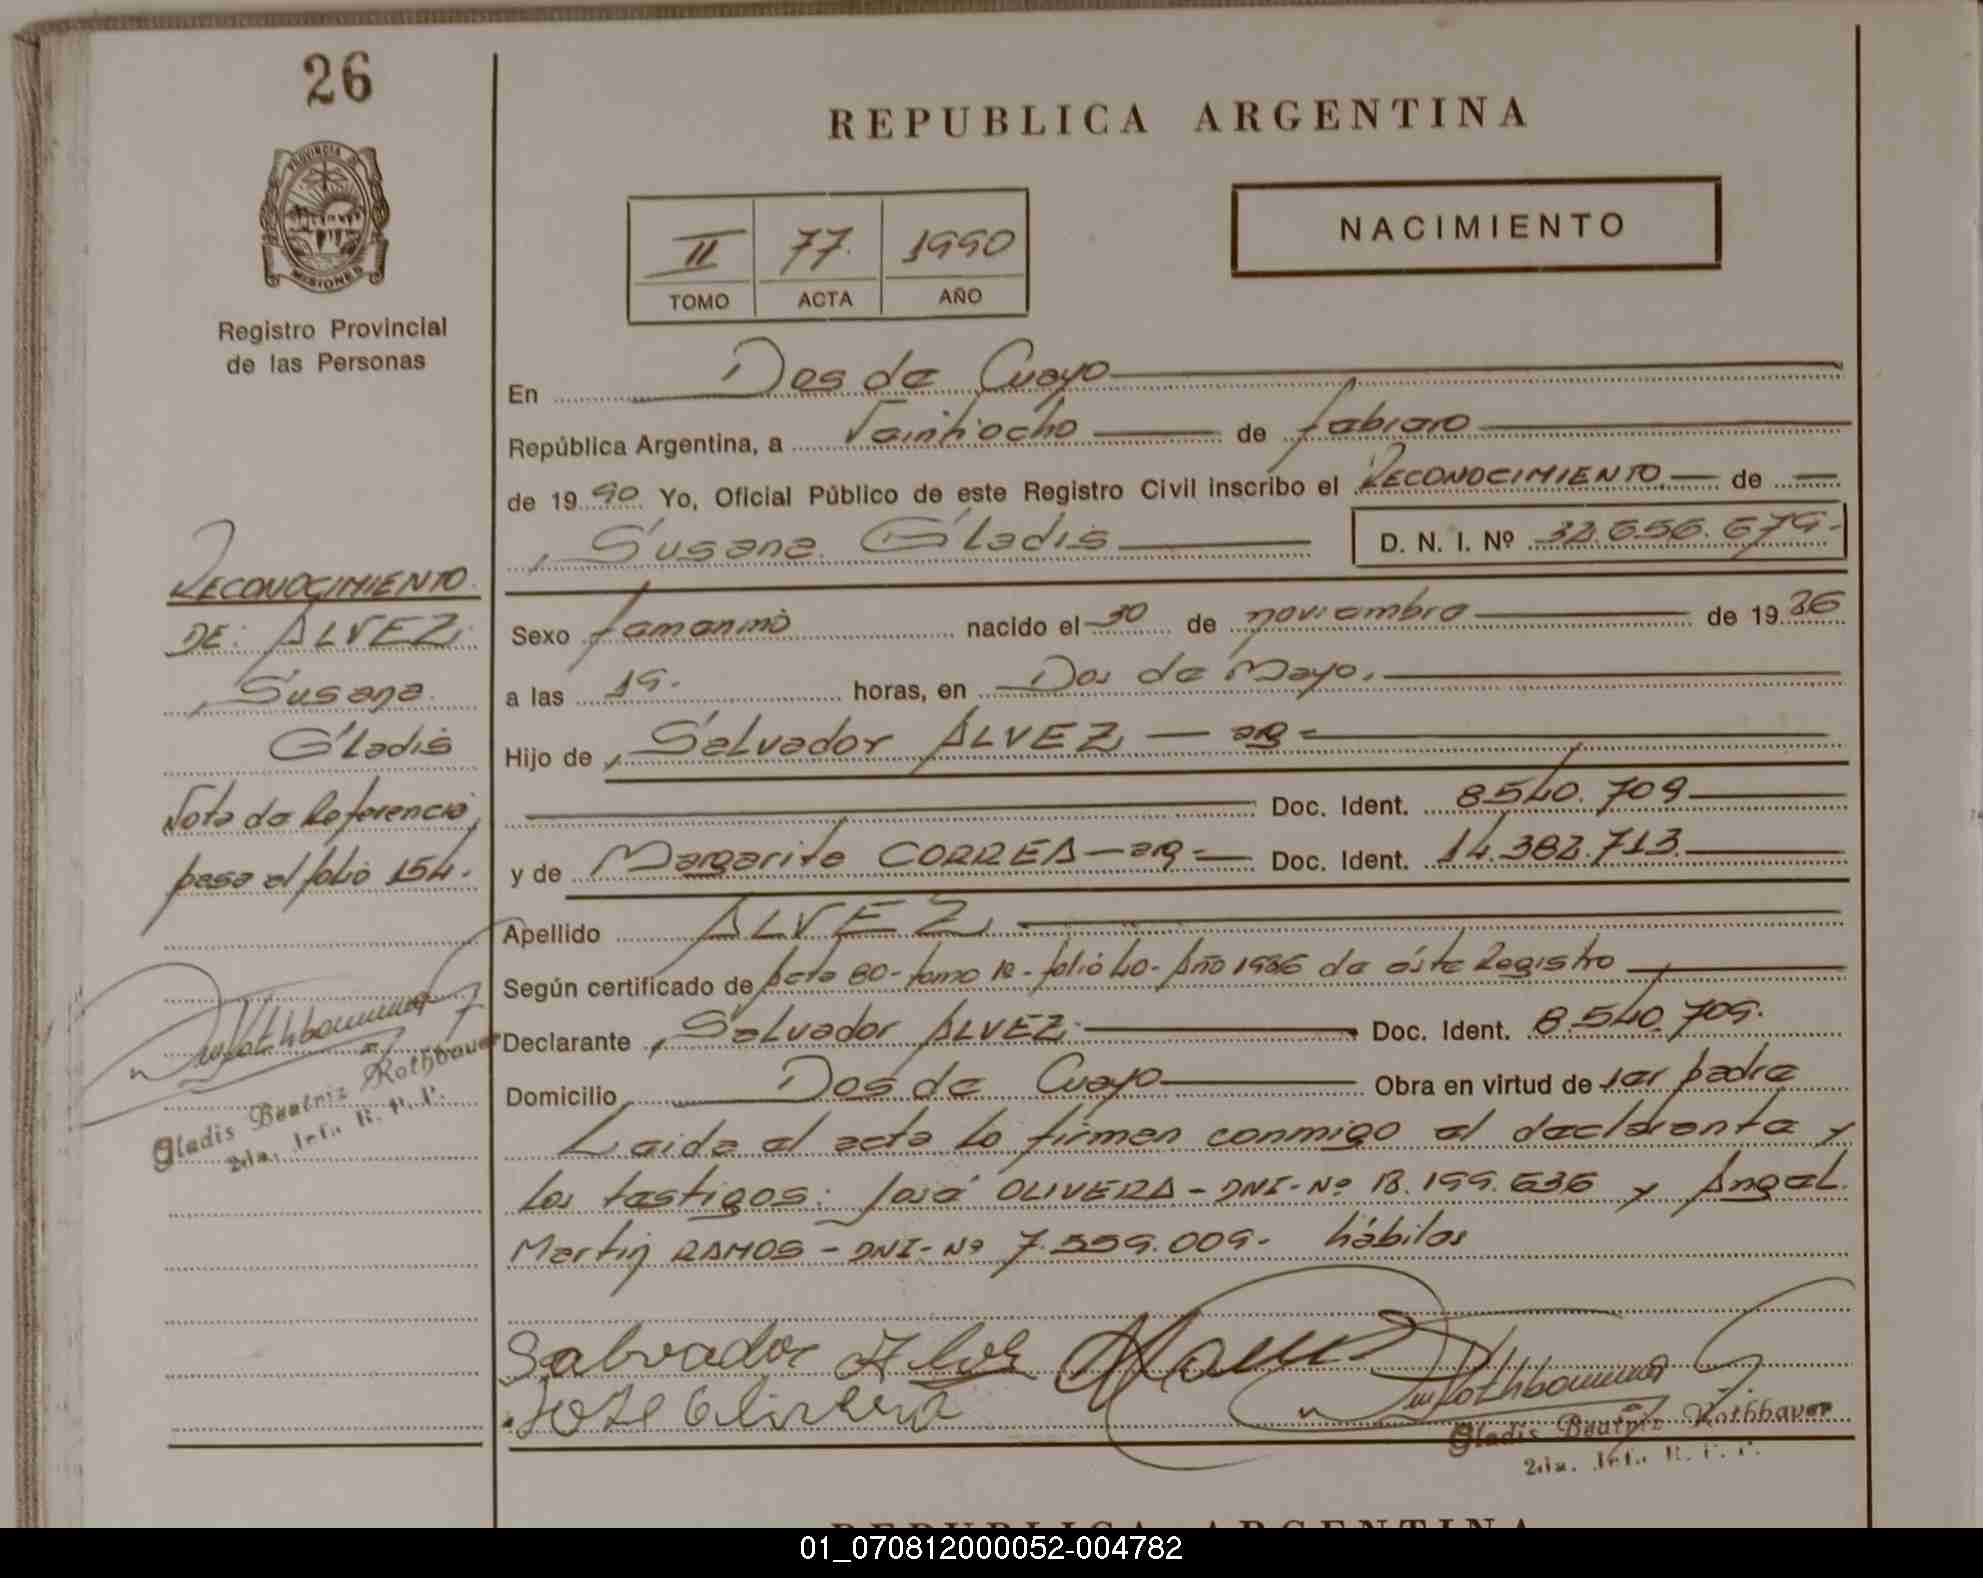 26
PROVINCIA DE
MISIONES
Registro Provincial
de las Personas
REPUBLICA ARGENTINA
NACIMIENTO
II 77. 1990
TOMO ACTA AÑO
En Dos de Cuayo
República Argentina, a Veintiocho de febrero
de 19 90 Yo, Oficial Público de este Registro Civil inscribo el RECONOCIMIENTO de
Susana Gladis D. N. I. Nº 32.656.679.
Sexo femenino nacido el 30 de noviembre de 19 86
a las 19. horas, en Dos de Mayo.
Hijo de Salvador ALVEZ — arg =
Doc. Ident. 8.540.709
y de Margarita CORREA — arg = Doc. Ident. 14.382.713
Apellido ALVEZ
Según certificado de Acta 80- tomo 1º- folio 40- Año 1986 de éste Registro
Declarante Salvador ALVEZ Doc. Ident. 8.540.709.
Domicilio Dos de Cuayo Obra en virtud de ser padre
Leida el acta lo firman conmigo el declarante y
los testigos: José OLIVERA - DNI- Nº 18.199.636 y Angel
Martin RAMOS - DNI- Nº 7.559.009- hábiles
Salvador Alves
Jose Olivera
Gladis Beatriz Rothbauer
2da. Jefa R. P. P.
RECONOCIMIENTO
DE: ALVEZ
Susana
Gladis
Nota de Referencia
pasa al folio 154.
Gladis Beatriz Rothbauer
2da. Jefa R. P. P.
REPUBLICA ARGENTINA
01_070812000052-004782